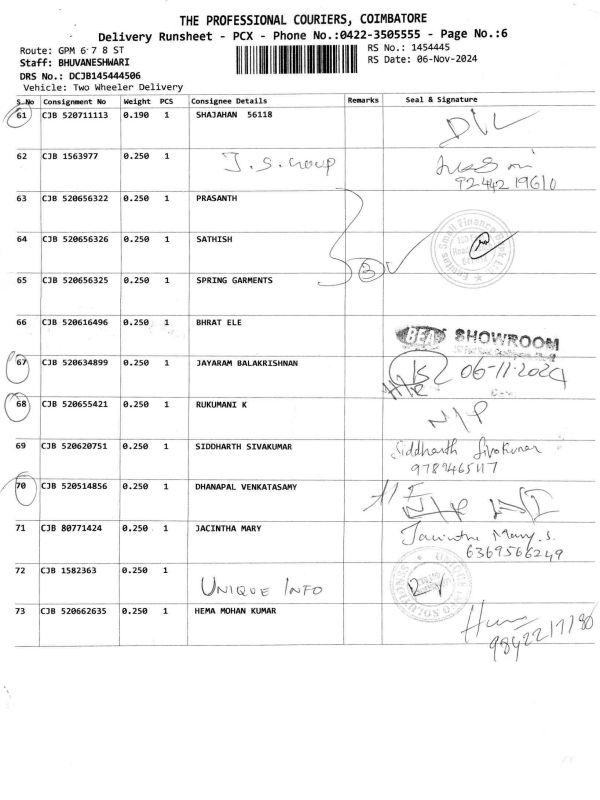 THE PROFESSIONAL COURIERS, COIMBATORE
Delivery Runsheet - PCX - Phone No.:0422-3505555 - Page No.:6
Route: GPM 6 7 8 ST
RS No.: 1454445
Staff: BHUVANESHWARI
RS Date: 06-Nov-2024
DRS No.: DCJB145444506
Vehicle: Two Wheeler Delivery
S.No Consignment No Weight PCS Consignee Details Remarks Seal & Signature
61 CJB 520711113 0.190 1 SHAJAHAN 56118 D\L
62 CJB 1563977 0.250 1 J.S. Group
9244219610
63 CJB 520656322 0.250 1 PRASANTH
64 CJB 520656326 0.250 1 SATHISH
3
65 CJB 520656325 0.250 1 SPRING GARMENTS
66 CJB 520616496 0.250 1 BHRAT ELE BEA SHOWROOM
67 CJB 520634899 0.250 1 JAYARAM BALAKRISHNAN 06-11-2024
68 CJB 520655421 0.250 1 RUKUMANI K N/P
69 CJB 520620751 0.250 1 SIDDHARTH SIVAKUMAR Siddharth Sivakumar
9789465117
70 CJB 520514856 0.250 1 DHANAPAL VENKATASAMY
N/P
71 CJB 80771424 0.250 1 JACINTHA MARY Jacintha Mary. S.
6369566249
72 CJB 1582363 0.250 1 UNIQUE INFO
73 CJB 520662635 0.250 1 HEMA MOHAN KUMAR